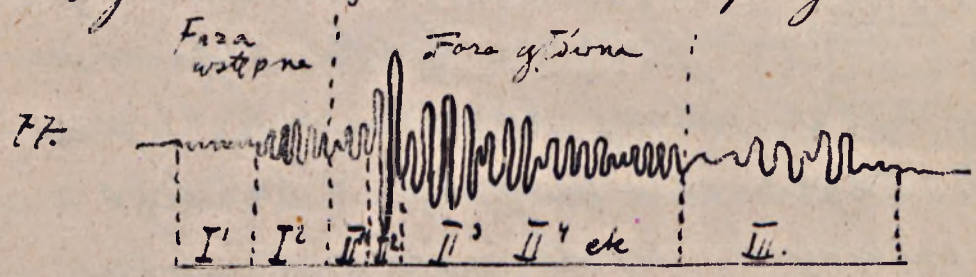 Faza
wstępna
Faza główna
77.
I¹ I² II¹ II² II³ II⁴ etc III.